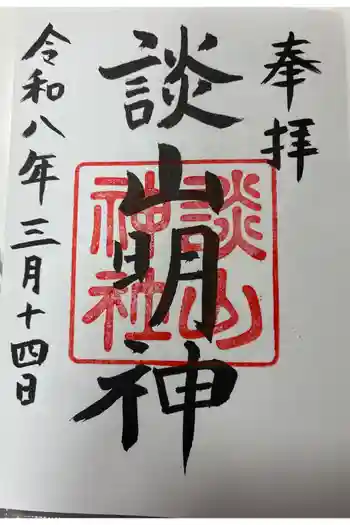 奉拝
談山明神
談山
神社
令和八年三月十四日